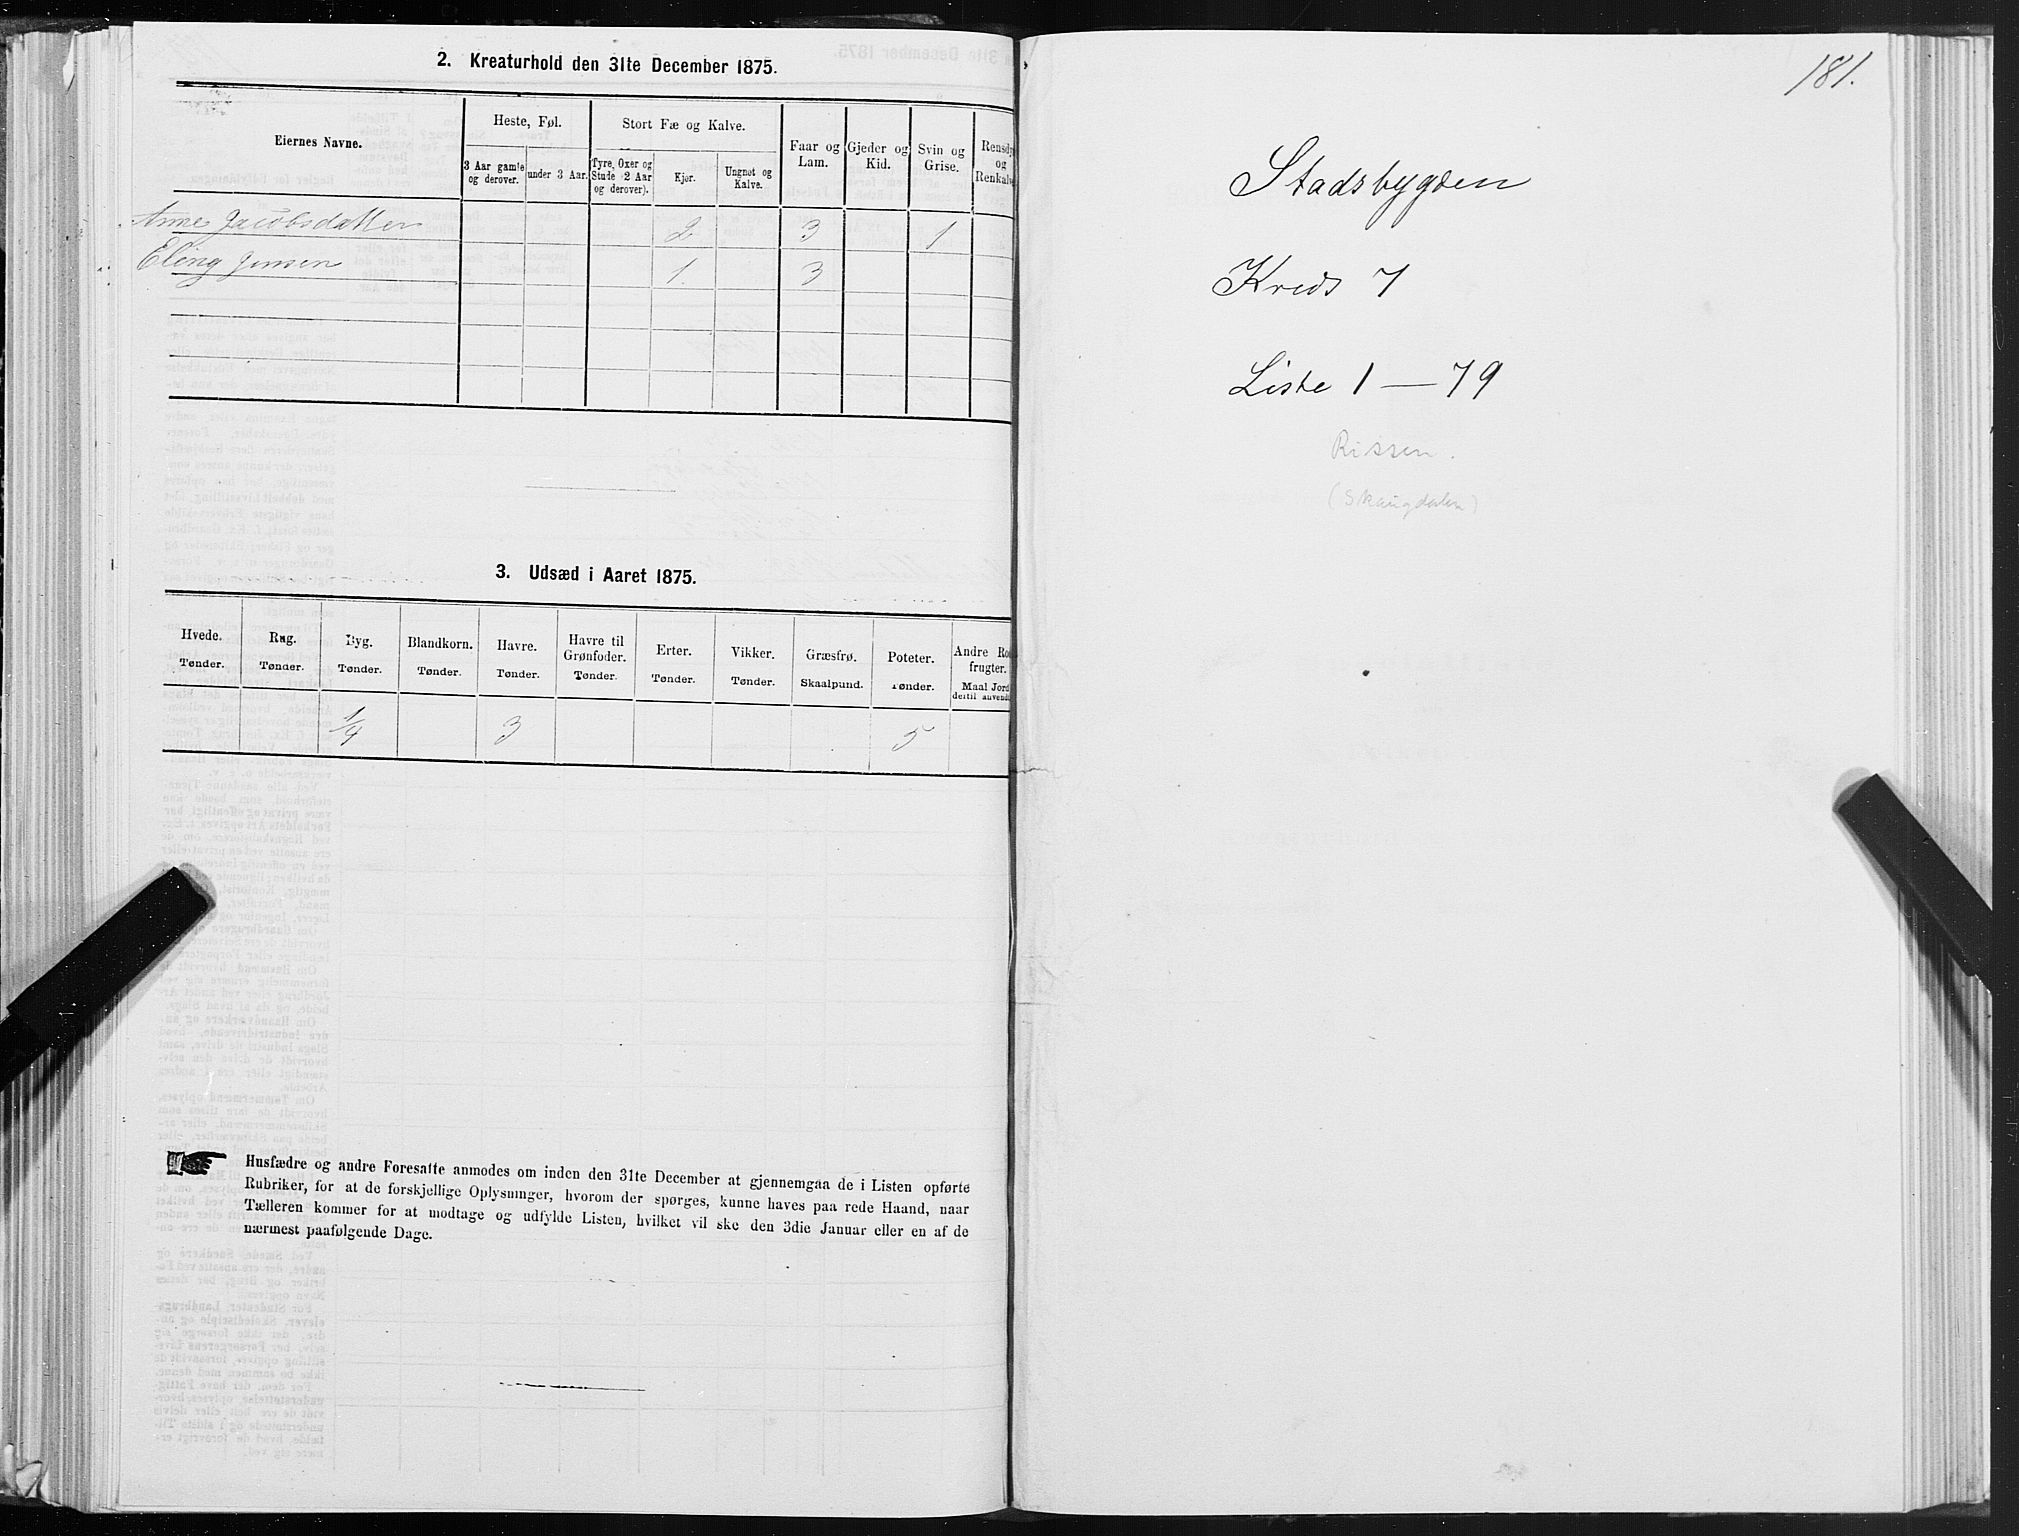 2. Kreaturhold den 31te December 1875.
Eiernes Navne.
Heste, Føl.
Stort Fæ og Kalve.
Faar og Lam.
Gjeder og Kid.
Svin og Grise.
Rensdy
og
Renkalv
3 Aar gamle og derover.
under 3 Aar.
Tyre, Oxer og Stude (2 Aar og derover).
Kjør.
Ungnøt og Kalve.
Anne Jacobsdatter 2 3 1
Eling Jensen 1. 3
3. Udsæd i Aaret 1875.
Hvede. Rug. Byg. Blandkorn. Havre. Havre til Grønfoder. Erter. Vikker. Græsfrø. Poteter. Andre Ro
frugter.
Tønder. Tønder. Tønder. Tønder. Tønder. Tønder. Tønder. Tønder. Skaalpund. Tønder. Maal Jord
dertil anvend
1/4 3 5
Husfædre og andre Foresatte anmodes om inden den 31te December at gjennemgaa de i Listen opførte
Rubriker, for at de forskjellige Oplysninger, hvorom der spørges, kunne haves paa rede Haand, naar
Tælleren kommer for at modtage og udfylde Listen, hvilket vil ske den 3die Januar eller en af de
nærmest paafølgende Dage.
181.
Stadsbygden
Kreds 7
Liste 1 — 79
Rissen.
(Skaugdalen)